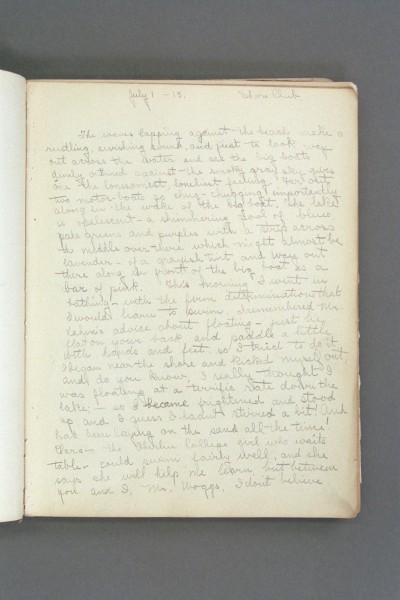 July 1 - 15. Shore Club
The waves lapping against the beach make a
rustling, swishing sound, and just to look way
out across the water and see the big boats
dimly outlined against the smoky gray sky gives
one the lonesomest, loneliest feeling! Way out
two motor-boats go chug-chugging importantly
along in the wake of the big boat. The lake
is opalescent - a shimmering pool of blues
pale greens and purples with a strip across
the middle over there which might almost be
lavender - of a grayish tint and way out
there along in front of the big boat is a
bar of pink. This morning I went in
bathing - with the firm determination that
I would learn to swim, remembered Mr.
advice about floating - just lie
flat on your back and paddle a little
with hands and feet, so I tried to do it
I began near the shore and kicked myself out,
and, do you know, I really thought I
was floating at a terrific rate down the
lake; - so I became frightened and stood
up and I guess I hadn't stirred a bit! And
had been laying on the sand all the time!
the Oberlin College girl who waits
table - could swim fairly well, and she
says she will help me learn, but between
you and I, Mr. Woggs, I dont believe